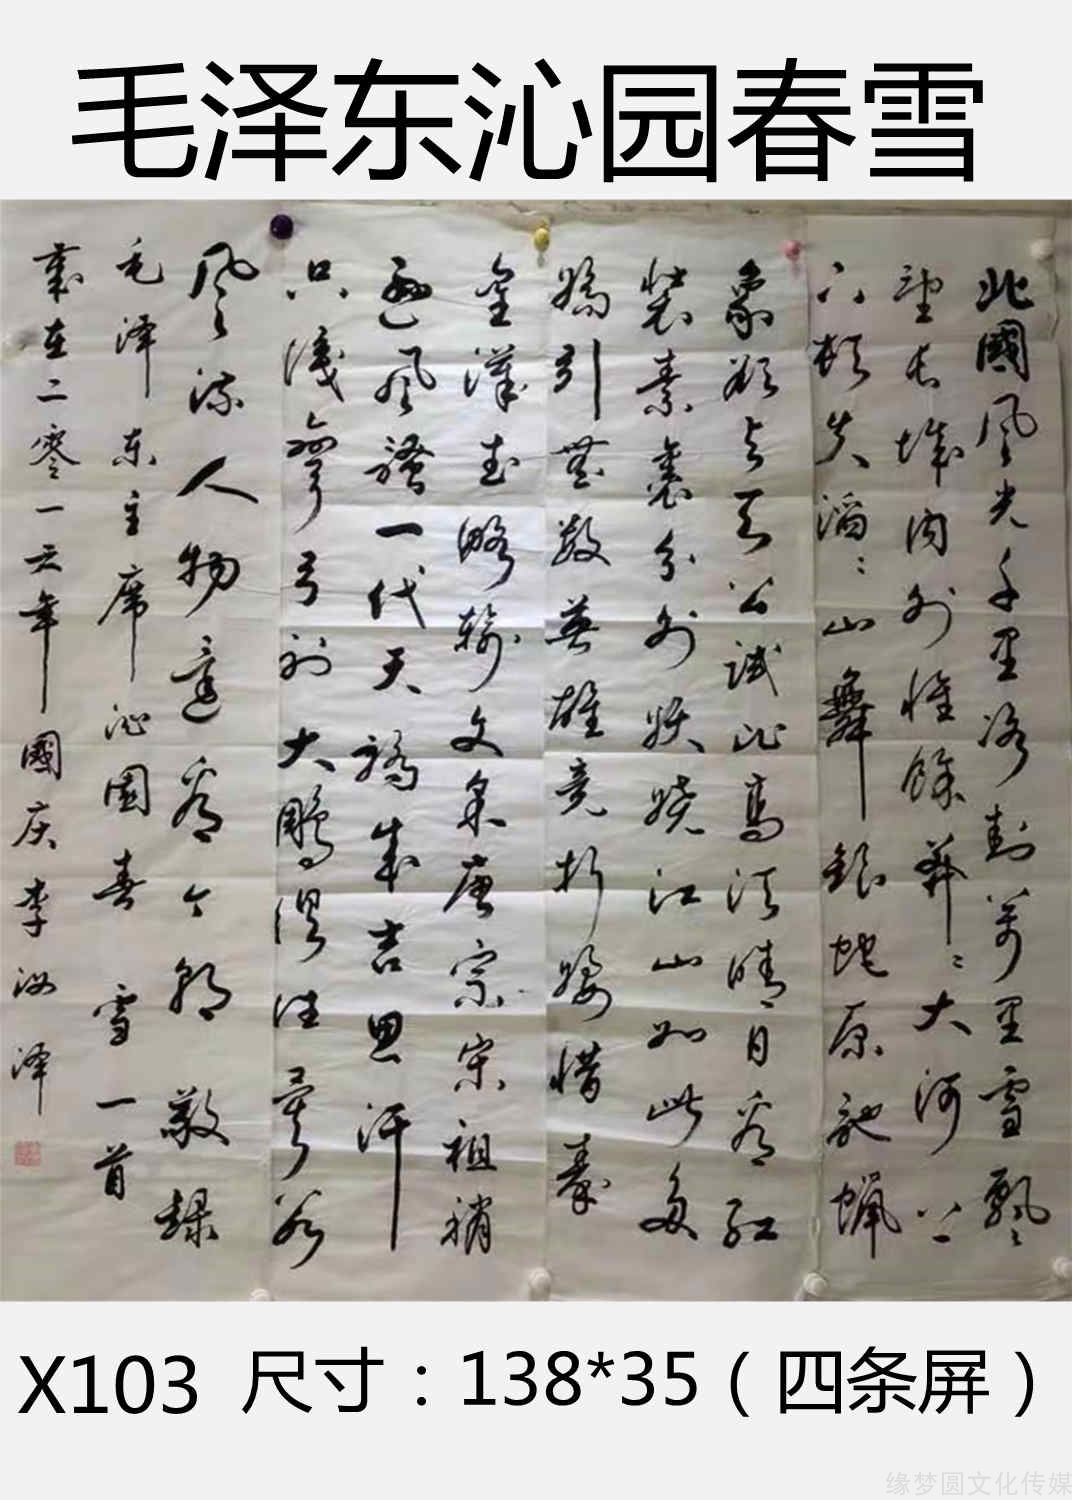 毛泽东沁园春雪
北國风光千里冰封萬里雪飘
望长城内外惟餘莽々大河上
下顿失滔々山舞银蛇原驰蠟
象欲与天公试比高须晴日看红
装素裹分外妖娆江山如此多
嬌引無数英雄竞折腰惜秦
皇漢武略输文采唐宗宋祖稍
逊风骚一代天骄成吉思汗
只識彎弓射大雕俱往矣数
风流人物還看今朝敬録
毛泽东主席沁園春雪一首
歲在二零一六年國庆李汝泽
X103 尺寸：138*35（四条屏）
缘梦圆文化传媒